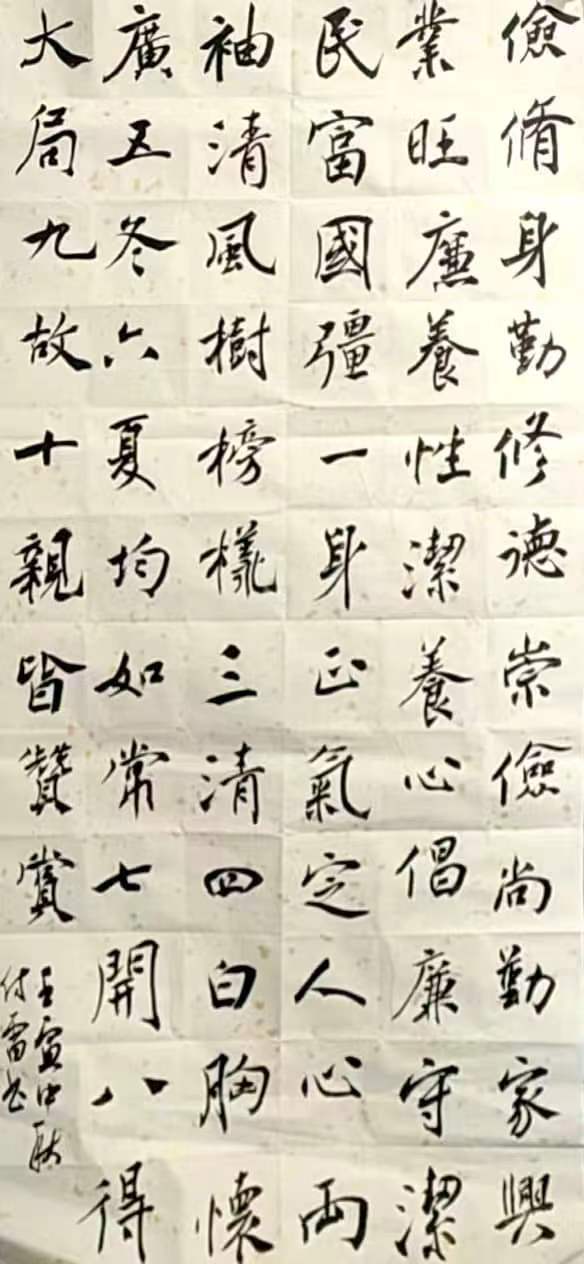 儉脩身勤修德崇儉尚勤家興
業旺廉養性潔養心倡廉守潔
民富國彊一身正氣定人心兩
袖清風樹榜樣三清四白胸懷
廣五冬六夏均如常七開八得
大局九故十親皆贊賞
壬寅中秋
付雷书